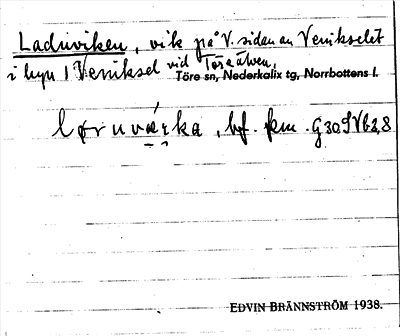 Laduviken, vik på V. sidan av Venikselet
i byn 1 Veniksel vid Töreälven,
Töre sn, Nederkalix tg, Norrbottens l.
bf. fm. G30 I Vb2,8
EDVIN BRÄNNSTRÖM 1938.